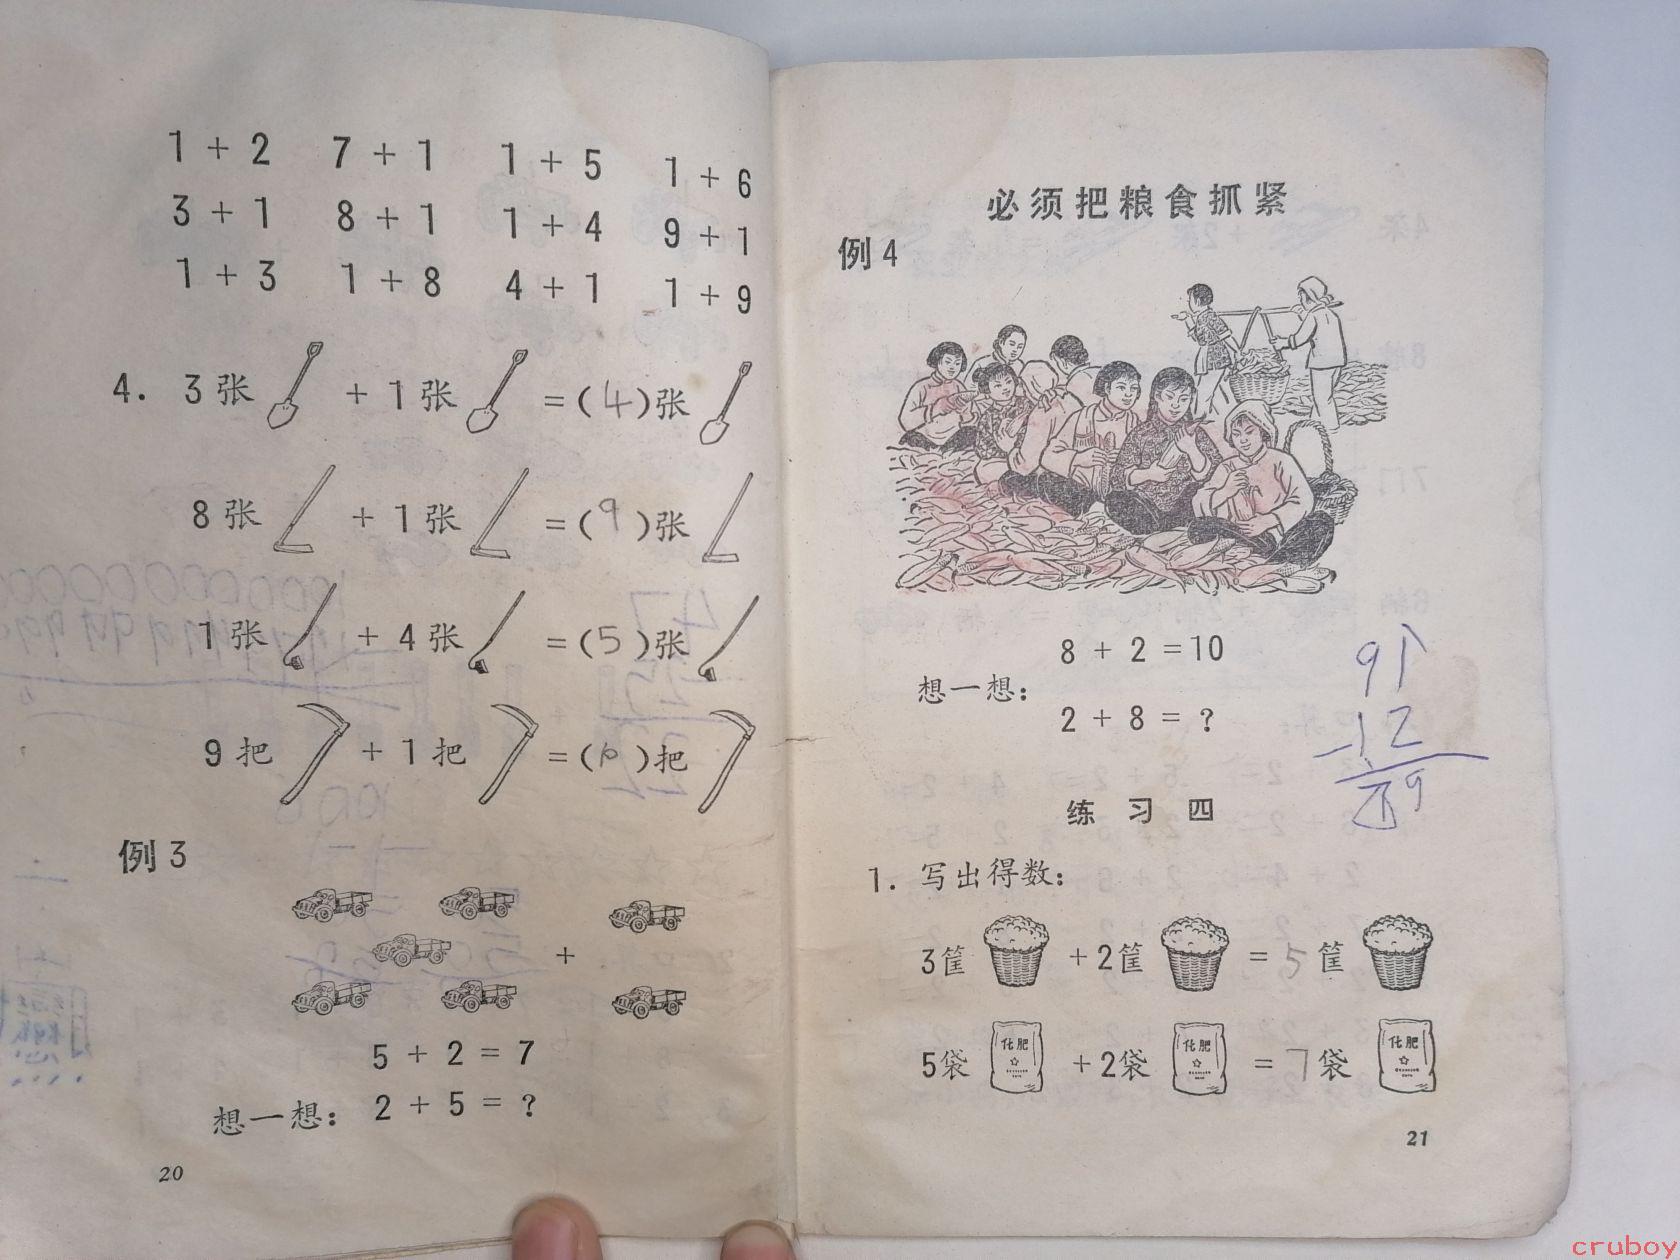 1 + 2 7 + 1 1 + 5 1 + 6
3 + 1 8 + 1 1 + 4 9 + 1
1 + 3 1 + 8 4 + 1 1 + 9
4. 3张 + 1张 = (4)张
8张 + 1张 = (9)张
1张 + 4张 = (5)张
9把 + 1把 = (10)把
例3
+
5 + 2 = 7
想一想: 2 + 5 = ?
20
必须把粮食抓紧
例4
8 + 2 = 10
想一想:
2 + 8 = ?
91
12
练习四
1. 写出得数:
3筐 + 2筐 = 5筐
5袋 化肥 + 2袋 化肥 = 7袋 化肥
21
cruboy